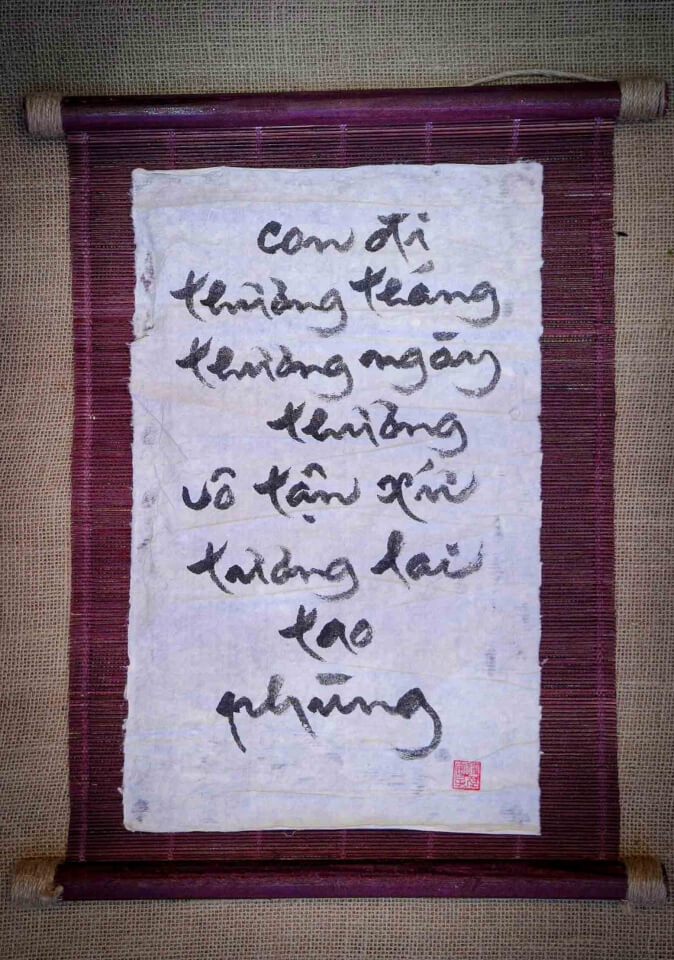 con đi
thường tháng
thường ngày
thường
vô tận xứ
trường lai
tao
phùng